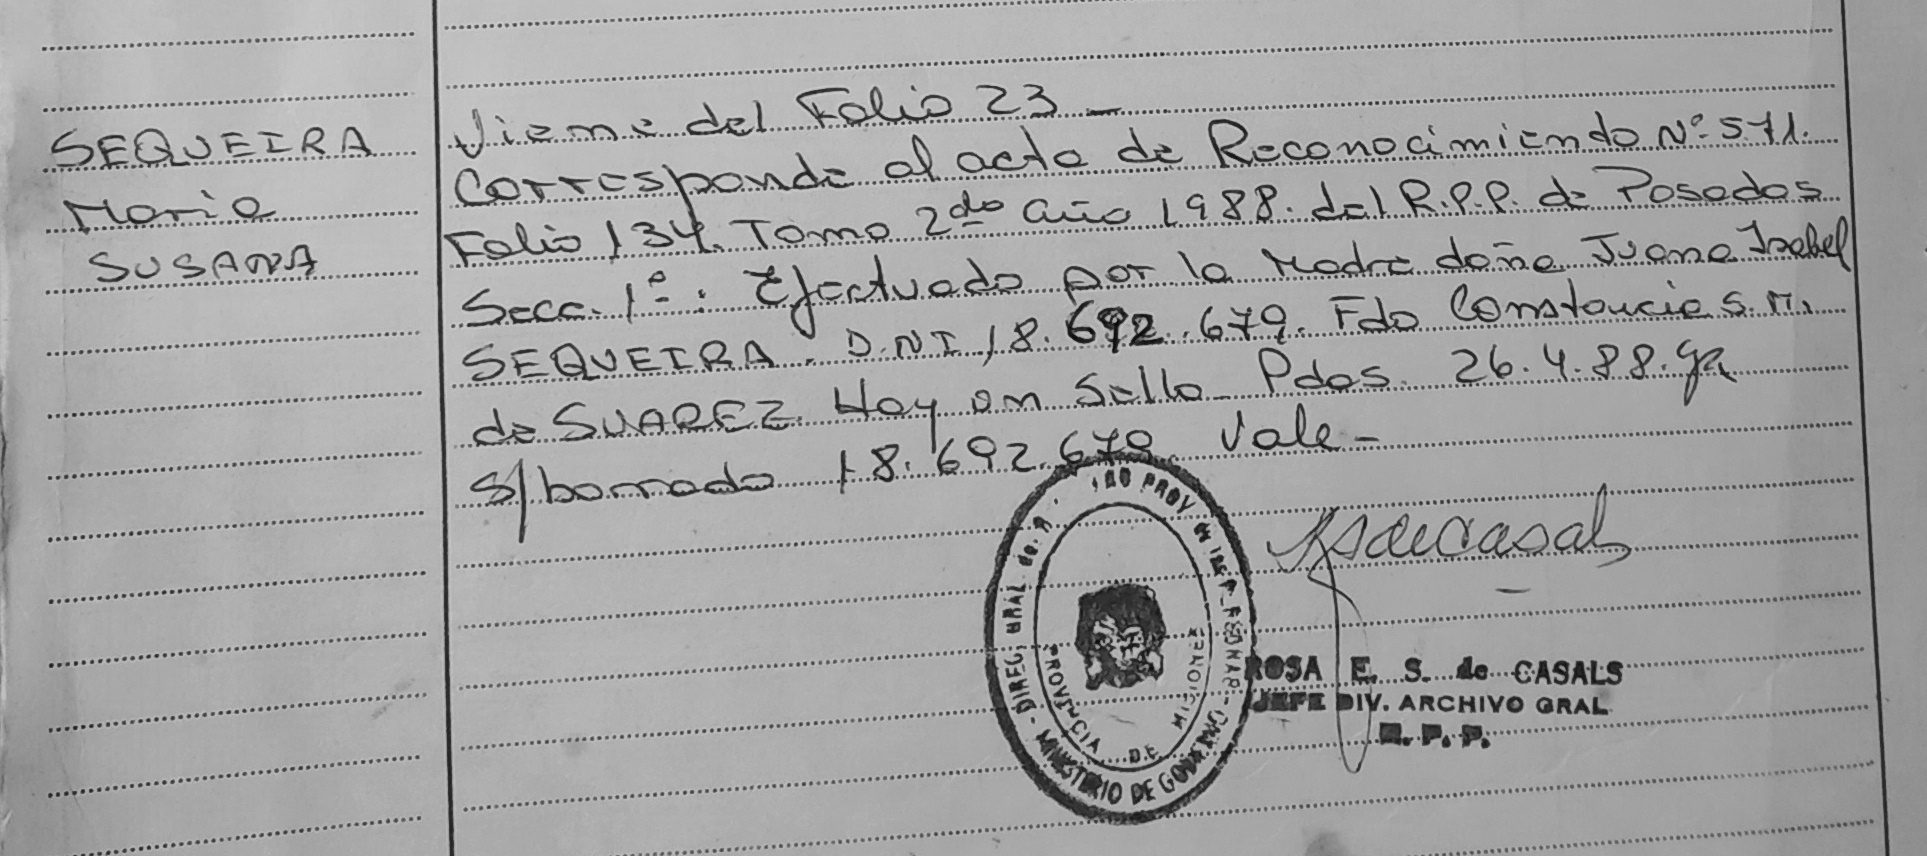 SEQUEIRA
Maria
SUSANA
Viene del Folio 23 -
Corresponde al acta de Reconocimiento Nº 571.
Folio 134. Tomo 2do año 1988. del R.P.P. de Posadas
Secc. 1º. Efectuado por la Madre doña Juana Isabel
SEQUEIRA. D.N.I 18.692.679. Fdo Constancia S. M.
de SUAREZ. Hay un Sello - Pdas. 26.4.88.
S/borrado 18.692.679. Vale -
PROV de las P
DIREC. GRAL de
MINISTERIO DE GOBIERNO
PROVINCIA DE MISIONES
ROSA E. S. de CASALS
JEFE DIV. ARCHIVO GRAL
R. P. P.